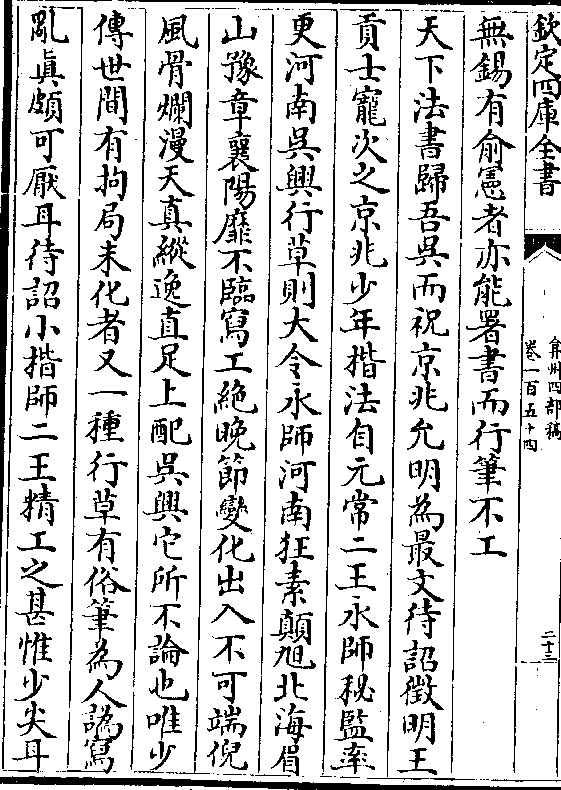 欽定四庫全書
弇州四部稿
卷一百五十四
二十三
無錫有俞憲者亦能署書而行筆不工
天下法書歸吾吳而祝京兆允明為最文待詔徵明王
貢士寵次之京兆少年楷法自元常二王永師秘監率
更河南吳興行草則大令永師河南狂素顛旭北海眉
山豫章襄陽靡不臨寫工絶晚節變化出入不可端倪
風骨爛漫天真縱逸直足上配吳興它所不論也唯少
傳世間有拘局未化者又一種行草有俗筆為人譌寫
亂真頗可厭耳待詔小楷師二王精工之甚惟少尖耳